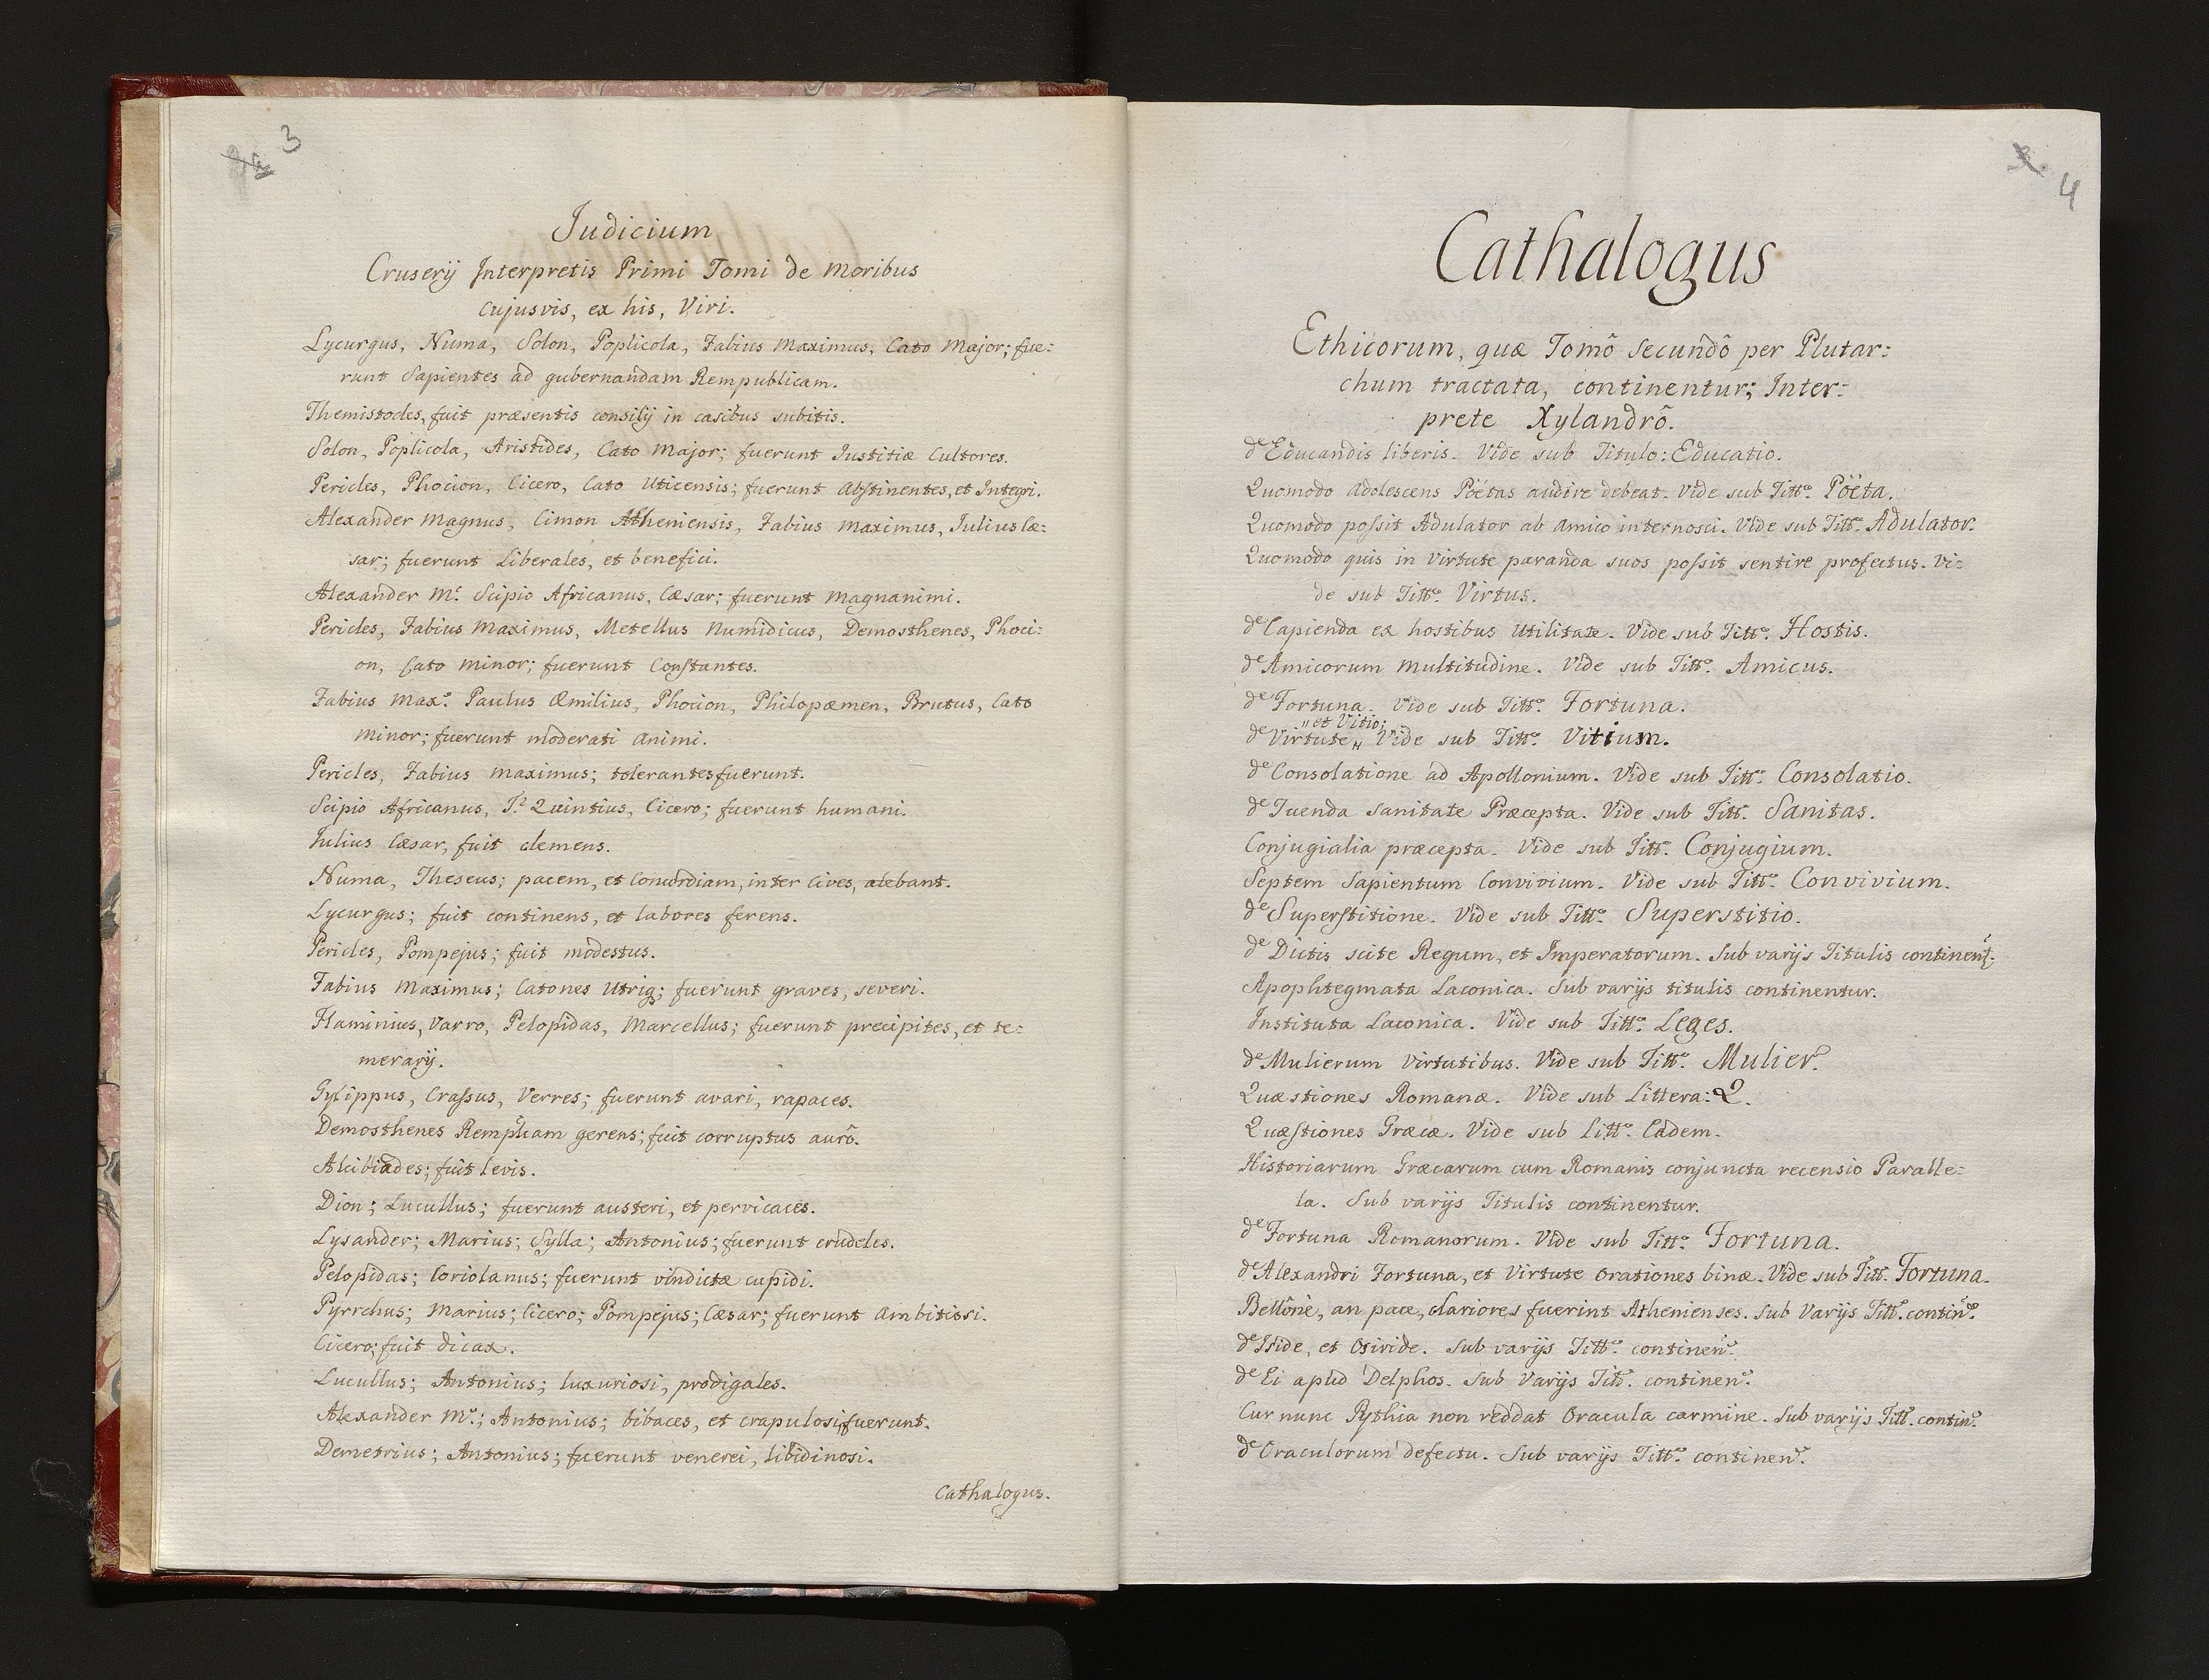 3
Judicium
Cruserij Interpretis Primi Tomi de moribus
cujusvis, ex his, Viri.
Lycurgus, Numa, Solon, Poplicola, Fabius Maximus, Cato Major; fue:
runt Sapientes ad gubernandam Rempublicam.
Themistocles, fuit præsentis consilij in casibus subitis.
Solon, Poplicola, Aristides, Cato Major; fuerunt Justitiæ Cultores.
Pericles, Phocion, Cicero, Cato Uticensis; fuerunt Abstinentes, et Integri.
Alexander Magnus, Cimon Atheniensis, Fabius Maximus, Julius Cæ:
sar; fuerunt Liberales, et benefici.
Alexander M.s Scipio Africanus, Cæsar; fuerunt Magnanimi.
Pericles, Fabius Maximus, Metellus Numidicus, Demosthenes, Phoci:
on, Cato Minor; fuerunt Constantes.
Fabius Max.s Paulus Æmilius, Phocion, Philopæmen, Brutus, Cato
Minor; fuerunt moderati Animi.
Pericles, Fabius Maximus; tolerantes fuerunt.
Scipio Africanus, T. Quintius, Cicero; fuerunt humani.
Julius Cæsar, fuit clemens.
Numa, Theseus; pacem, et Concordiam, inter Cives, alebant.
Lycurgus; fuit continens, et labores ferens.
Pericles, Pompejus; fuit modestus.
Fabius Maximus; Catones Utriq; fuerunt graves, severi.
Flaminius, Varro, Pelopidas, Marcellus; fuerunt precipites, et te:
merarij.
Gylippus, Crassus, Verres; fuerunt avari, rapaces.
Demosthenes Remplicam gerens; fuit corruptus aurô.
Alcibiades; fuit levis.
Dion; Lucullus; fuerunt austeri, et pervicaces.
Lysander; Marius; Sylla; Antonius; fuerunt crudeles.
Pelopidas; Coriolanus; fuerunt vindictæ cupidi.
Pyrrchus; Marius; Cicero; Pompejus; Cæsar; fuerunt Ambitiosi.
Cicero; fuit dicax.
Lucullus; Antonius; luxuriosi, prodigales.
Alexander M.s; Antonius; bibaces, et crapulosi, fuerunt.
Demetrius; Antonius; fuerunt venerei, libidinosi.
Cathalogus.
4
Cathalogus
Ethicorum, quæ Tomô Secundô per Plutar:
chum tractata, continentur; Inter:
prete Xylandrô.
de Educandis liberis. Vide sub Titulo: Educatio.
Quomodo Adolescens Pöetas audire debeat. Vide sub Titto. Pöeta.
Quomodo possit Adulator ab Amico internosci. Vide sub Titto. Adulator.
Quomodo quis in Virtute paranda suos possit sentire profectus. Vi:
de sub Titto. Virtus.
de Capienda ex hostibus Utilitate. Vide sub Titto. Hostis.
de Amicorum Multitudine. Vide sub Titto. Amicus.
de Fortuna. Vide sub Titto. Fortuna.
"et Vitio;
de Virtute " Vide sub Titto. Vitium.
de Consolatione ad Apollonium. Vide sub Titto. Consolatio.
de Tuenda Sanitate Præcepta. Vide sub Titt. Sanitas.
Conjugialia præcepta. Vide sub Titto. Conjugium.
Septem Sapientum Convivium. Vide sub Titto. Convivium.
de Superstitione. Vide sub Titto. Superstitio.
de Dictis scite Regum, et Imperatorum. Sub varijs Titulis continent.
Apophtegmata Laconica. Sub varijs titulis continentur.
Instituta Laconica. Vide sub Titto. Leges.
de Mulierum Virtutibus. Vide sub Titto. Mulier.
Quæstiones Romanæ. Vide sub Littera: Q.
Quæstiones Græcæ. Vide sub Litto. Eadem.
Historiarum Græcarum cum Romanis conjuncta recensio Paralle:
la. Sub varijs Titulis continentur.
de Fortuna Romanorum. Vide sub Titto. Fortuna.
de Alexandri Fortuna, et Virtute Orationes binæ. Vide sub Titt. Fortuna.
Bellône, an pace, clariores fuerint Athenienses. Sub Varijs Titt. contin.
de Iside, et Osiride. Sub varijs Titto. continen.
de Ei apud Delphos. Sub Varijs Titt. continen.
Cur nunc Pythia non reddat Oracula carmine. Sub varijs Titt. contin.
de Oraculorum defectu. Sub varijs Titto. continen.